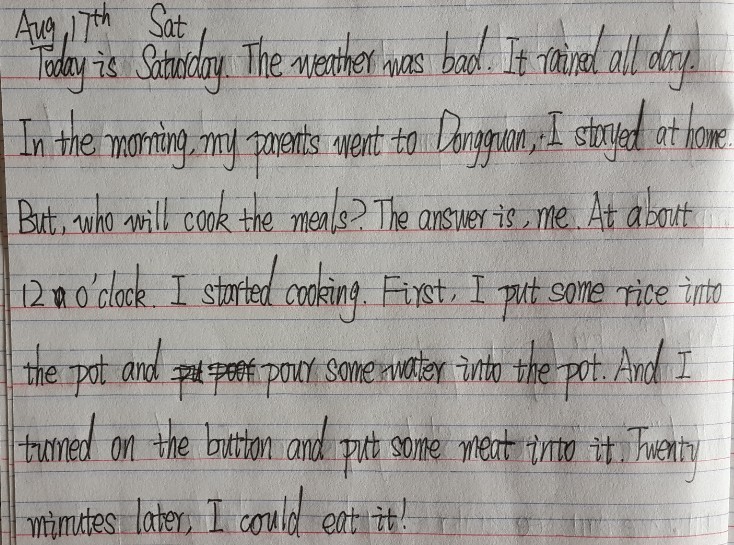 Aug, 17th Sat
Today is Saturday. The weather was bad. It rained all day.
In the morning, my parents went to Dongguan, I stayed at home.
But, who will cook the meals? The answer is, me. At about
12 o'clock. I started cooking. First, I put some rice into
the pot and pour some water into the pot. And I
turned on the button and put some meat into it. Twenty
minutes later, I could eat it!